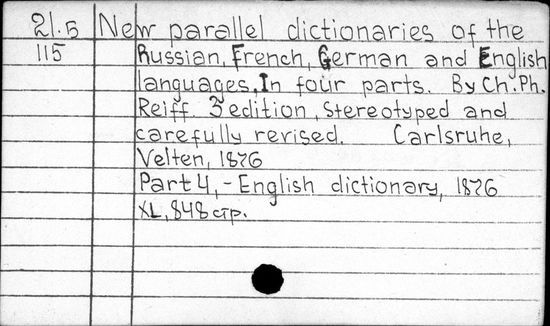 21.5 New parallel dictionaries of the
115 Russian, French, German and English
languages, In four parts. By Ch. Ph.
Reiff. 3 edition, stereotyped and
carefully revised. Carlsruhe,
Velten, 1876
Part 4, - English dictionary, 1876
XL, 848 стр.